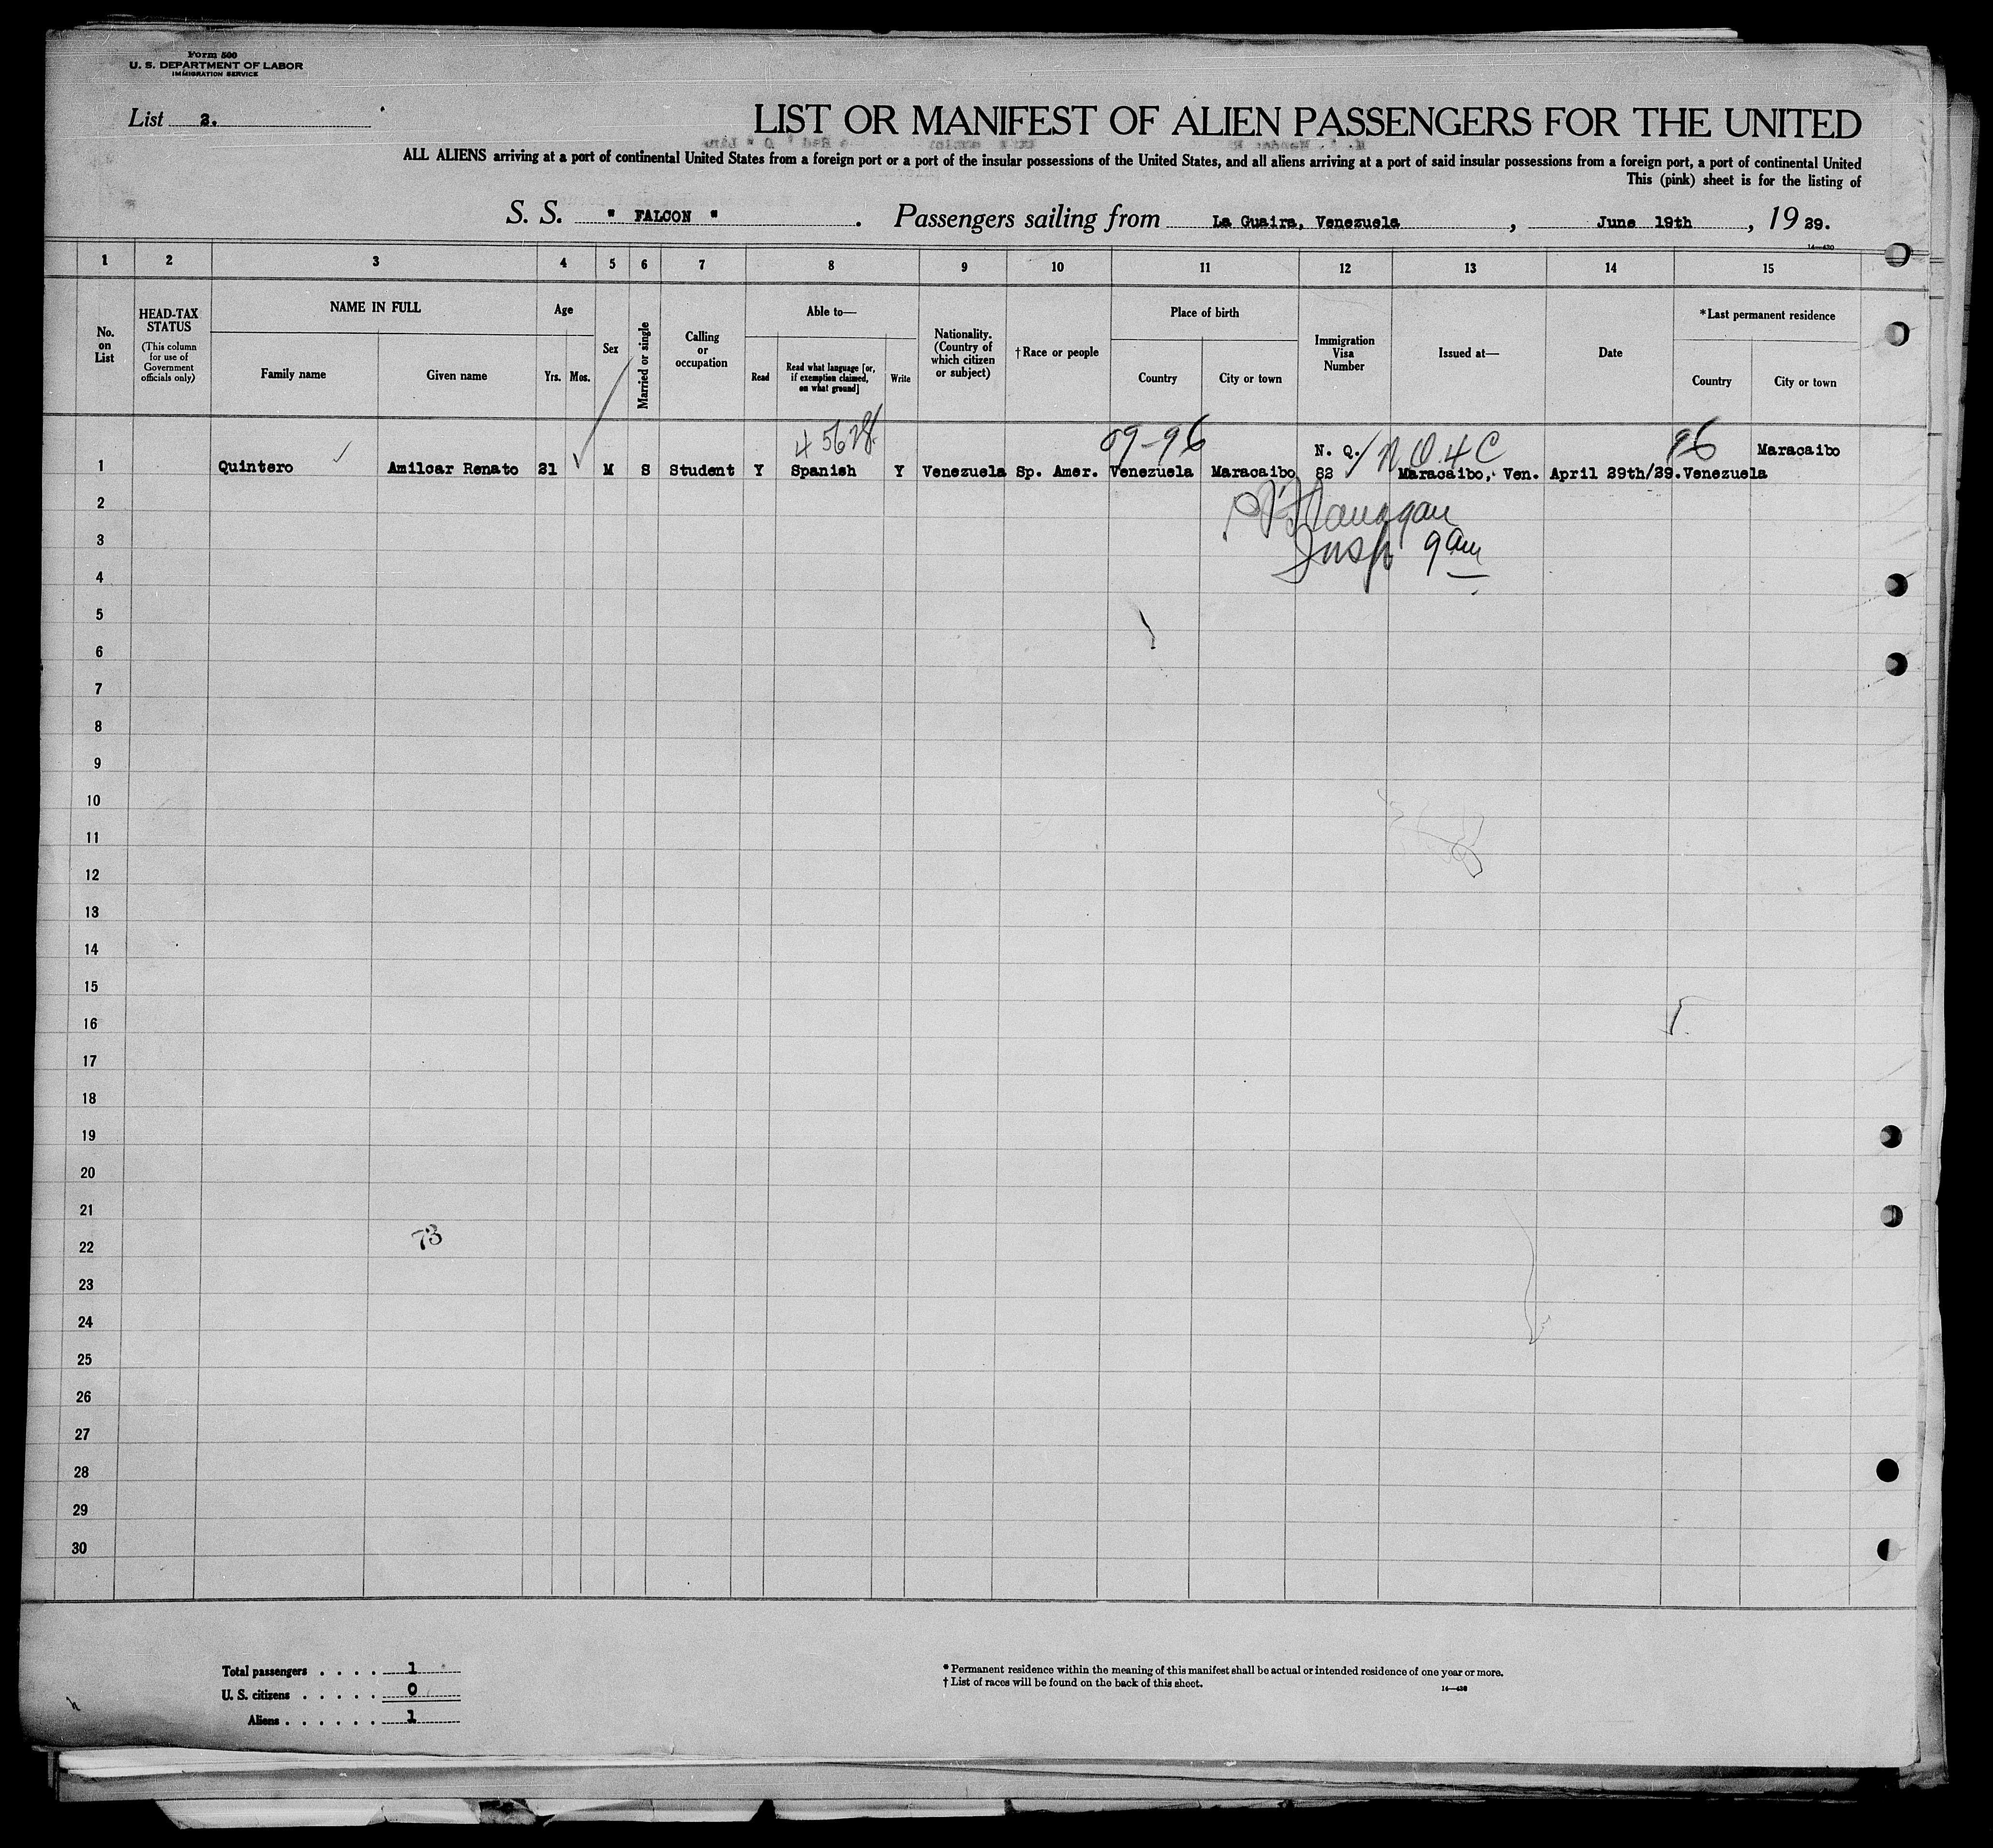 Form 500
U. S. DEPARTMENT OF LABOR
IMMIGRATION SERVICE
List 2.
LIST OR MANIFEST OF ALIEN PASSENGERS FOR THE UNITED
ALL ALIENS arriving at a port of continental United States from a foreign port or a port of the insular possessions of the United States, and all aliens arriving at a port of said insular possessions from a foreign port, a port of continental United
This (pink) sheet is for the listing of
S. S. " FALCON " . Passengers sailing from La Guaira, Venezuela , June 19th , 19 29.
14—430
1 2 3 4 5 6 7 8 9 10 11 12 13 14 15
No. on List
HEAD-TAX STATUS
(This column for use of Government officials only)
NAME IN FULL
Family name
Given name
Age
Yrs. Mos.
Sex
Married or single
Calling or occupation
Able to—
Read
Read what language [or, if exemption claimed, on what ground]
Write
Nationality. (Country of which citizen or subject)
†Race or people
Place of birth
Country
City or town
Immigration Visa Number
Issued at—
Date
*Last permanent residence
Country
City or town
45628
09-96
N. Q.
N.Q.4C
96
Maracaibo
1 Quintero Amilcar Renato 21 M S Student Y Spanish Y Venezuela Sp. Amer. Venezuela Maracaibo 82 Maracaibo, Ven. April 29th/29. Venezuela
2
Flanagan
3
Insp 9am
4
5
6
7
8
9
10
11
12
13
14
15
16
17
18
19
20
21
73
22
23
24
25
26
27
28
29
30
Total passengers . . . . 1
U. S. citizens . . . . . 0
Aliens . . . . . . 1
* Permanent residence within the meaning of this manifest shall be actual or intended residence of one year or more.
† List of races will be found on the back of this sheet.
14—430